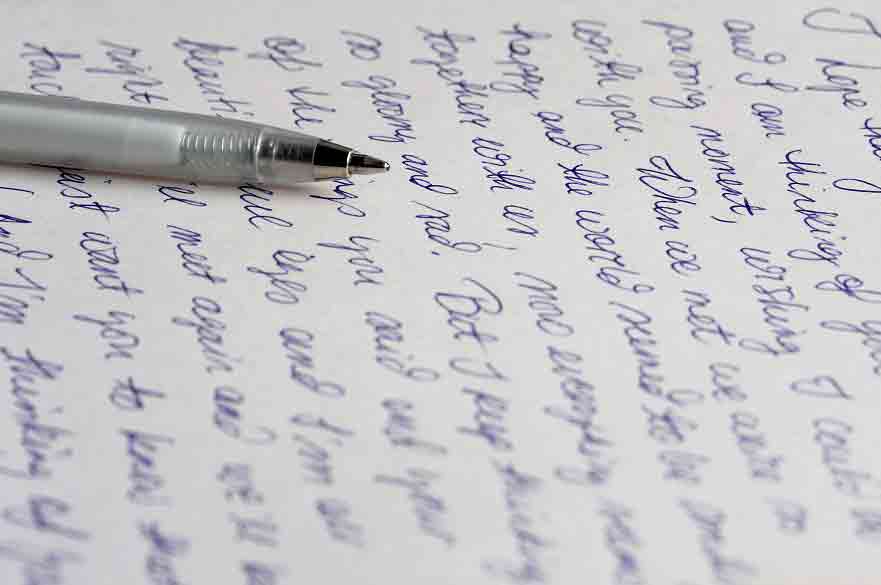 I hope
and I am thinking of you
parting moment, wishing I could be
with you. When we met we were so
happy and the world semed to be
together with us, now everything
so gloomy and sad. But I keep thinking
of the you said and your
eyes and I'm
right met again and we'll
want you to know that
And I'm thinking of you